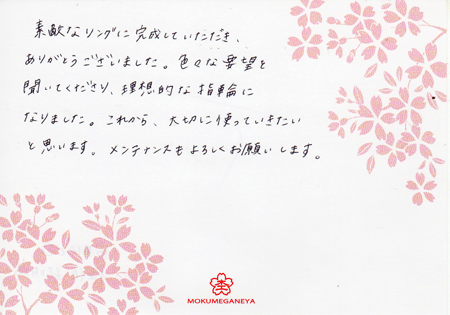 素敵なリングに完成していただき、
ありがとうございました。色々な要望を
聞いてくださり、理想的な指輪に
なりました。これから、大切に使っていきたい
と思います。メンテナンスもよろしくお願いします。
MOKUMEGANEYA